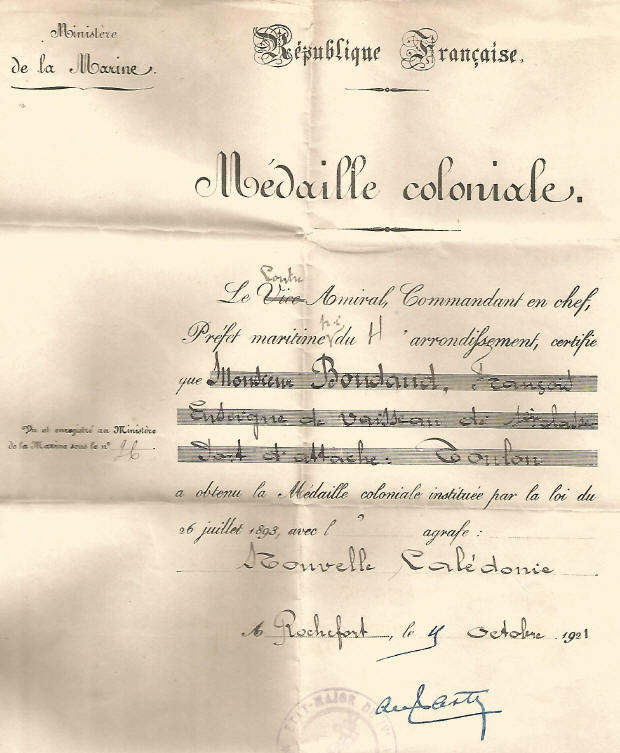 Ministère
de la Marine.
République Française.
Médaille coloniale.
Contre
Le Vice Amiral, Commandant en chef,
Préfet maritime du 4 arrondissement, certifie
que Monsieur Boudaud, François
Enseigne de vaisseau de 1ère classe
Port d'attache: Toulon
Vu et enregistré au Ministère
de la Marine sous le n° 26
a obtenu la Médaille coloniale instituée par la loi du
26 juillet 1893, avec l' agrafe:
Nouvelle Calédonie
A Rochefort, le Octobre 1921
ETAT-MAJOR